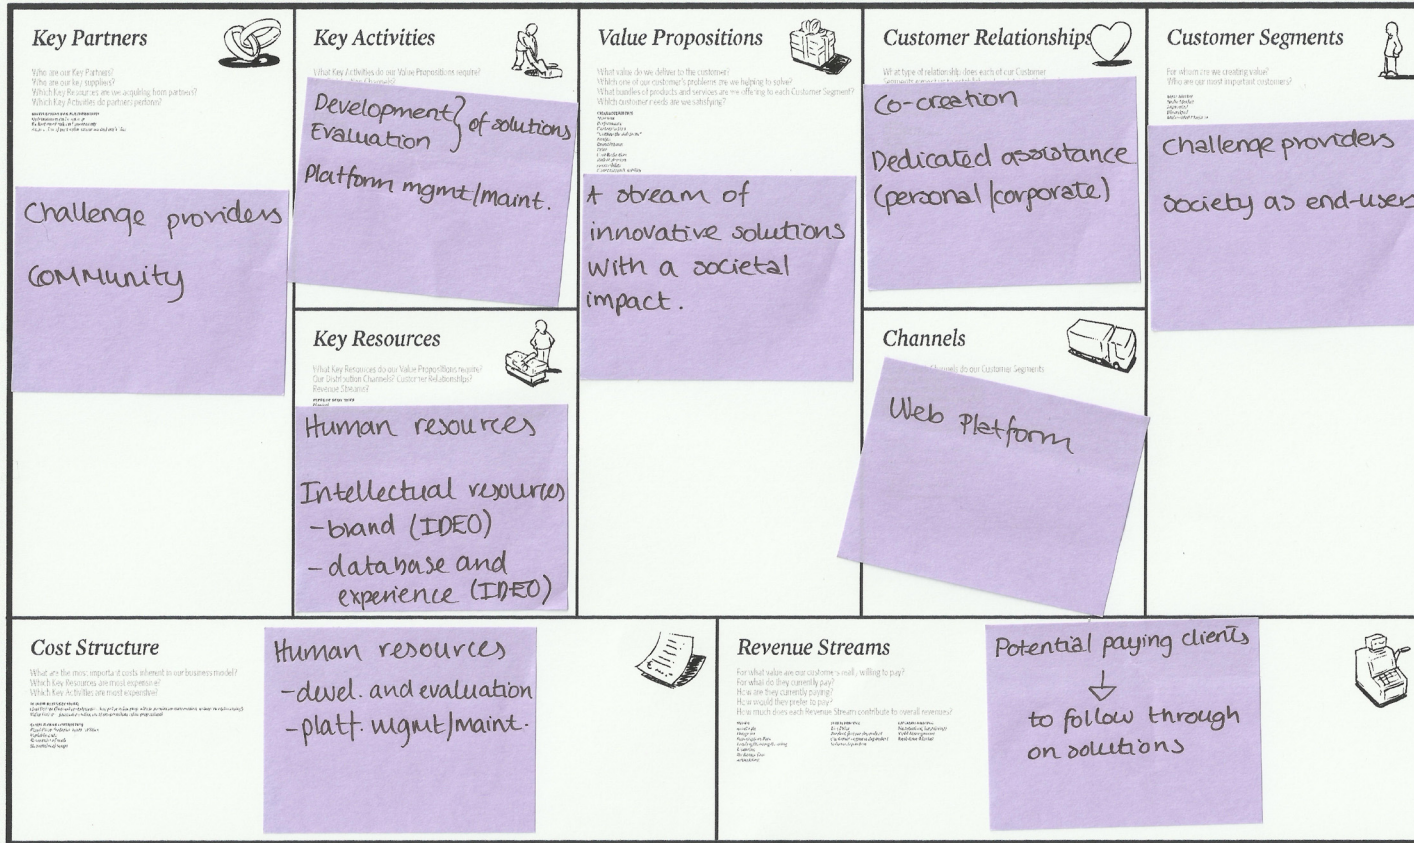 Key Partners
Who are our Key Partners?
Who are our key suppliers?
Which Key Resources are we acquiring from partners?
Which Key Activities do partners perform?
Challenge providers
Community
Key Activities
What Key Activities do our Value Propositions require?
Development } of solutions
Evaluation
Platform mgmt/maint.
Key Resources
What Key Resources do our Value Propositions require?
Our Distribution Channels? Customer Relationships?
Revenue Streams?
Human resources
Intellectual resources
- brand (IDEO)
- database and
experience (IDEO)
Value Propositions
What value do we deliver to the customer?
Which one of our customer's problems are we helping to solve?
What bundles of products and services are we offering to each Customer Segment?
Which customer needs are we satisfying?
A stream of
innovative solutions
with a societal
impact.
Customer Relationships
What type of relationship does each of our Customer
Co-creation
Dedicated assistance
(personal/corporate)
Channels
do our Customer Segments
Web Platform
Customer Segments
For whom are we creating value?
Who are our most important customers?
Challenge providers
Society as end-user
Cost Structure
What are the most important costs inherent in our business model?
Which Key Resources are most expensive?
Which Key Activities are most expensive?
Human resources
- devel. and evaluation
- platf. mgmt/maint.
Revenue Streams
For what value are our customers really willing to pay?
For what do they currently pay?
How are they currently paying?
How would they prefer to pay?
How much does each Revenue Stream contribute to overall revenues?
Potential paying clients
to follow through
on solutions